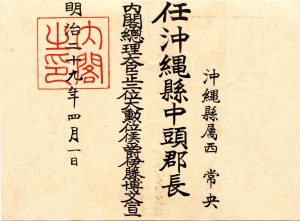 沖縄縣属西 常央
任沖縄縣中頭郡長
内閣總理大臣正二位大勲位侯爵伊藤博文宣
明治二十九年四月一日
内閣之印